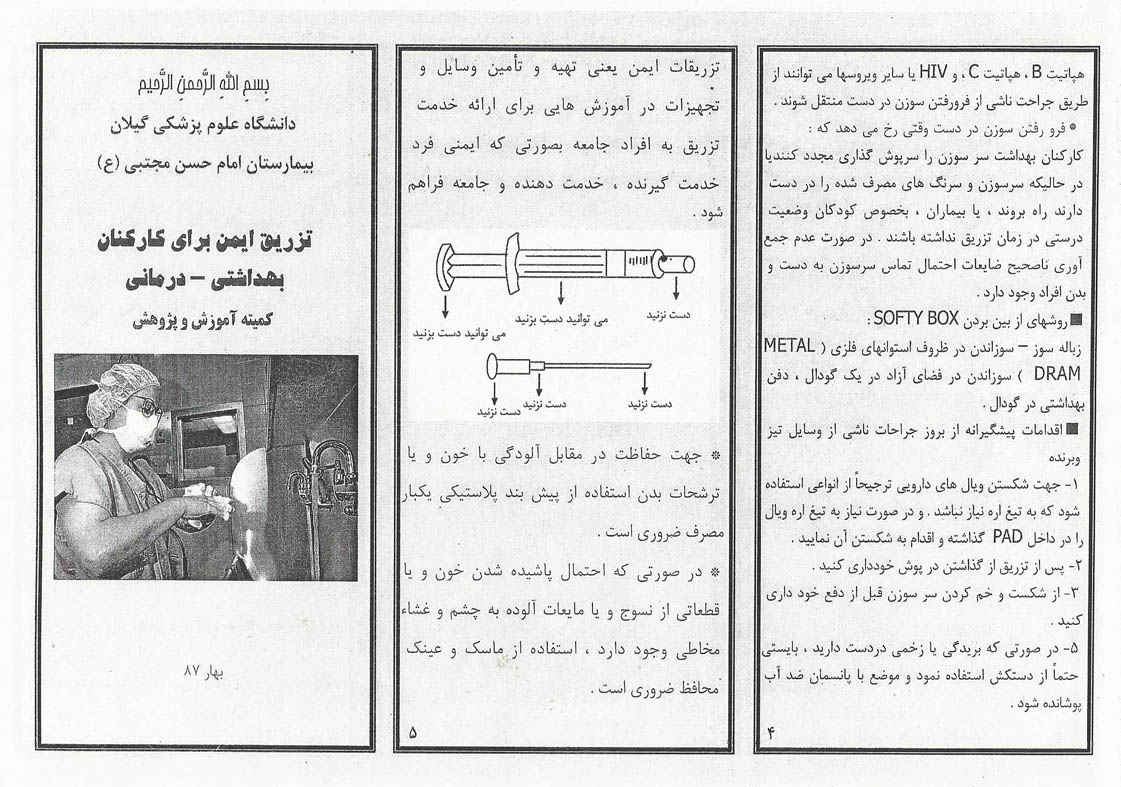 هپاتیت B ، هپاتیت C ، و HIV یا سایر ویروسها می توانند از
طریق جراحت ناشی از فرورفتن سوزن در دست منتقل شوند .
* فرو رفتن سوزن در دست وقتی رخ می دهد که :
کارکنان بهداشت سر سوزن را سرپوش گذاری مجدد کنندیا
در حالیکه سرسوزن و سرنگ های مصرف شده را در دست
دارند راه بروند ، یا بیماران ، بخصوص کودکان وضعیت
درستی در زمان تزریق نداشته باشند . در صورت عدم جمع
آوری ناصحیح ضایعات احتمال تماس سرسوزن به دست و
بدن افراد وجود دارد .
■ روشهای از بین بردن SOFTY BOX :
زباله سوز – سوزاندن در ظروف استوانهای فلزی ( METAL
DRAM ) سوزاندن در فضای آزاد در یک گودال ، دفن
بهداشتی در گودال .
■ اقدامات پیشگیرانه از بروز جراحات ناشی از وسایل تیز
وبرنده
۱- جهت شکستن ویال های دارویی ترجیحاً از انواعی استفاده
شود که به تیغ اره نیاز نباشد . و در صورت نیاز به تیغ اره ویال
را در داخل PAD گذاشته و اقدام به شکستن آن نمایید .
۲- پس از تزریق از گذاشتن در پوش خودداری کنید .
۳- از شکست و خم کردن سر سوزن قبل از دفع خود داری
کنید .
۵- در صورتی که بریدگی یا زخمی دردست دارید ، بایستی
حتماً از دستکش استفاده نمود و موضع با پانسمان ضد آب
پوشانده شود .
۴
تزریقات ایمن یعنی تهیه و تأمین وسایل و
تجهیزات در آموزش هایی برای ارائه خدمت
تزریق به افراد جامعه بصورتی که ایمنی فرد
خدمت گیرنده ، خدمت دهنده و جامعه فراهم
شود .
دست نزنید
می توانید دست بزنید
می توانید دست بزنید
دست نزنید
دست نزنید
دست نزنید
* جهت حفاظت در مقابل آلودگی با خون و یا
ترشحات بدن استفاده از پیش بند پلاستیکی یکبار
مصرف ضروری است .
* در صورتی که احتمال پاشیده شدن خون و یا
قطعاتی از نسوج و یا مایعات آلوده به چشم و غشاء
مخاطی وجود دارد ، استفاده از ماسک و عینک
محافظ ضروری است .
۵
بِسمِ اللهِ الرَّحمنِ الرَّحیم
دانشگاه علوم پزشکی گیلان
بیمارستان امام حسن مجتبی (ع)
تزریق ایمن برای کارکنان
بهداشتی – درمانی
کمیته آموزش و پژوهش
بهار ۸۷